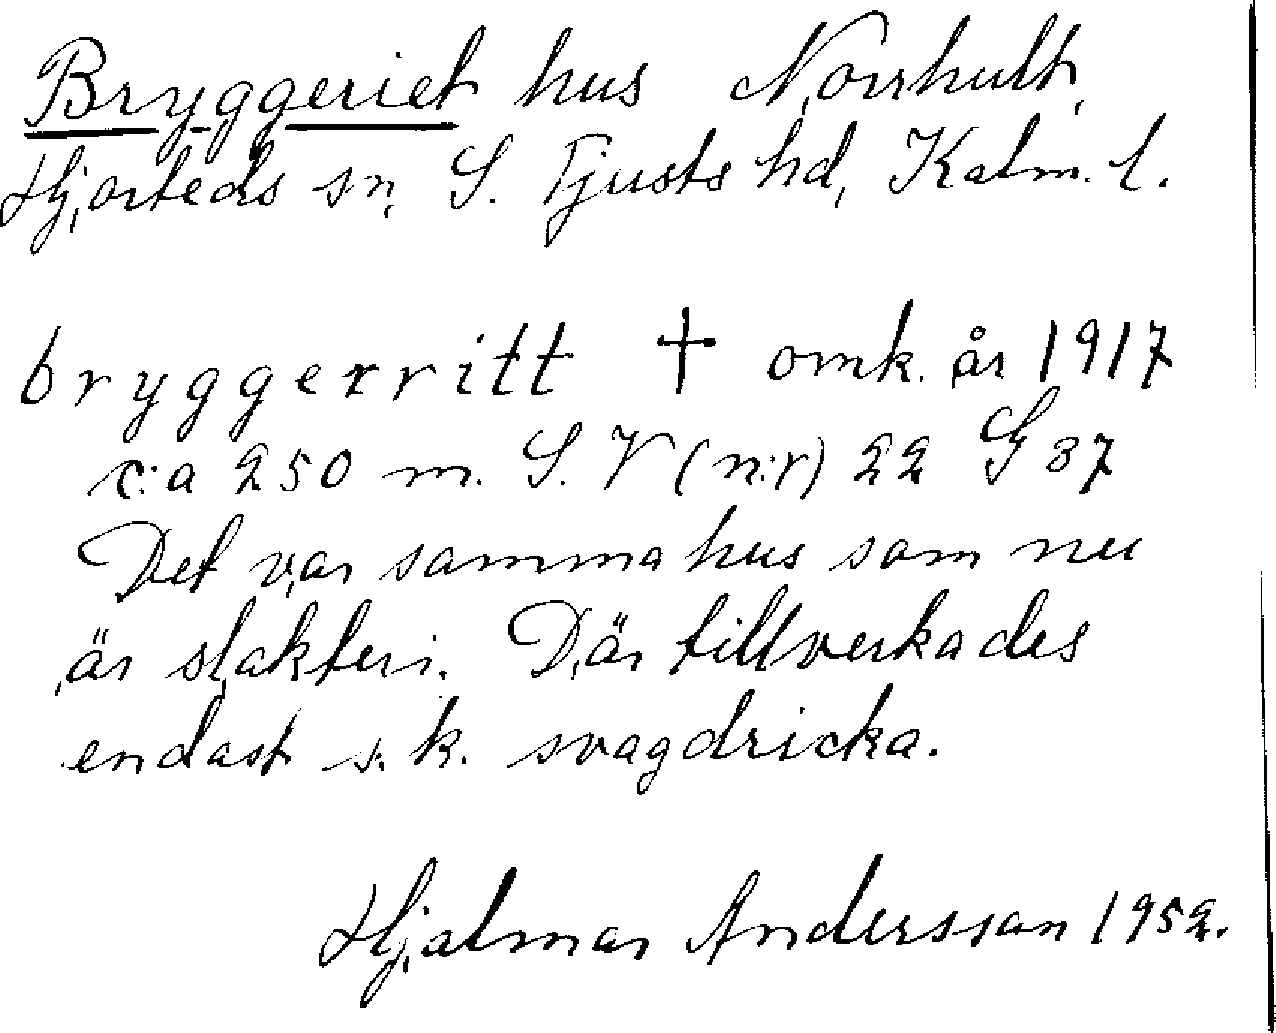 Bryggeriet hus Norrhult,
Hjorteds sn, S. Tjusts hd, Kalm. l.
bryggerritt † omk. år 1917
c:a 250 m. S. V (n:r) 22 G 37
Det var samma hus som nu
är slakteri. Där tillverkades
endast s.k. svagdricka.
Hjalmar Andersson 1952.